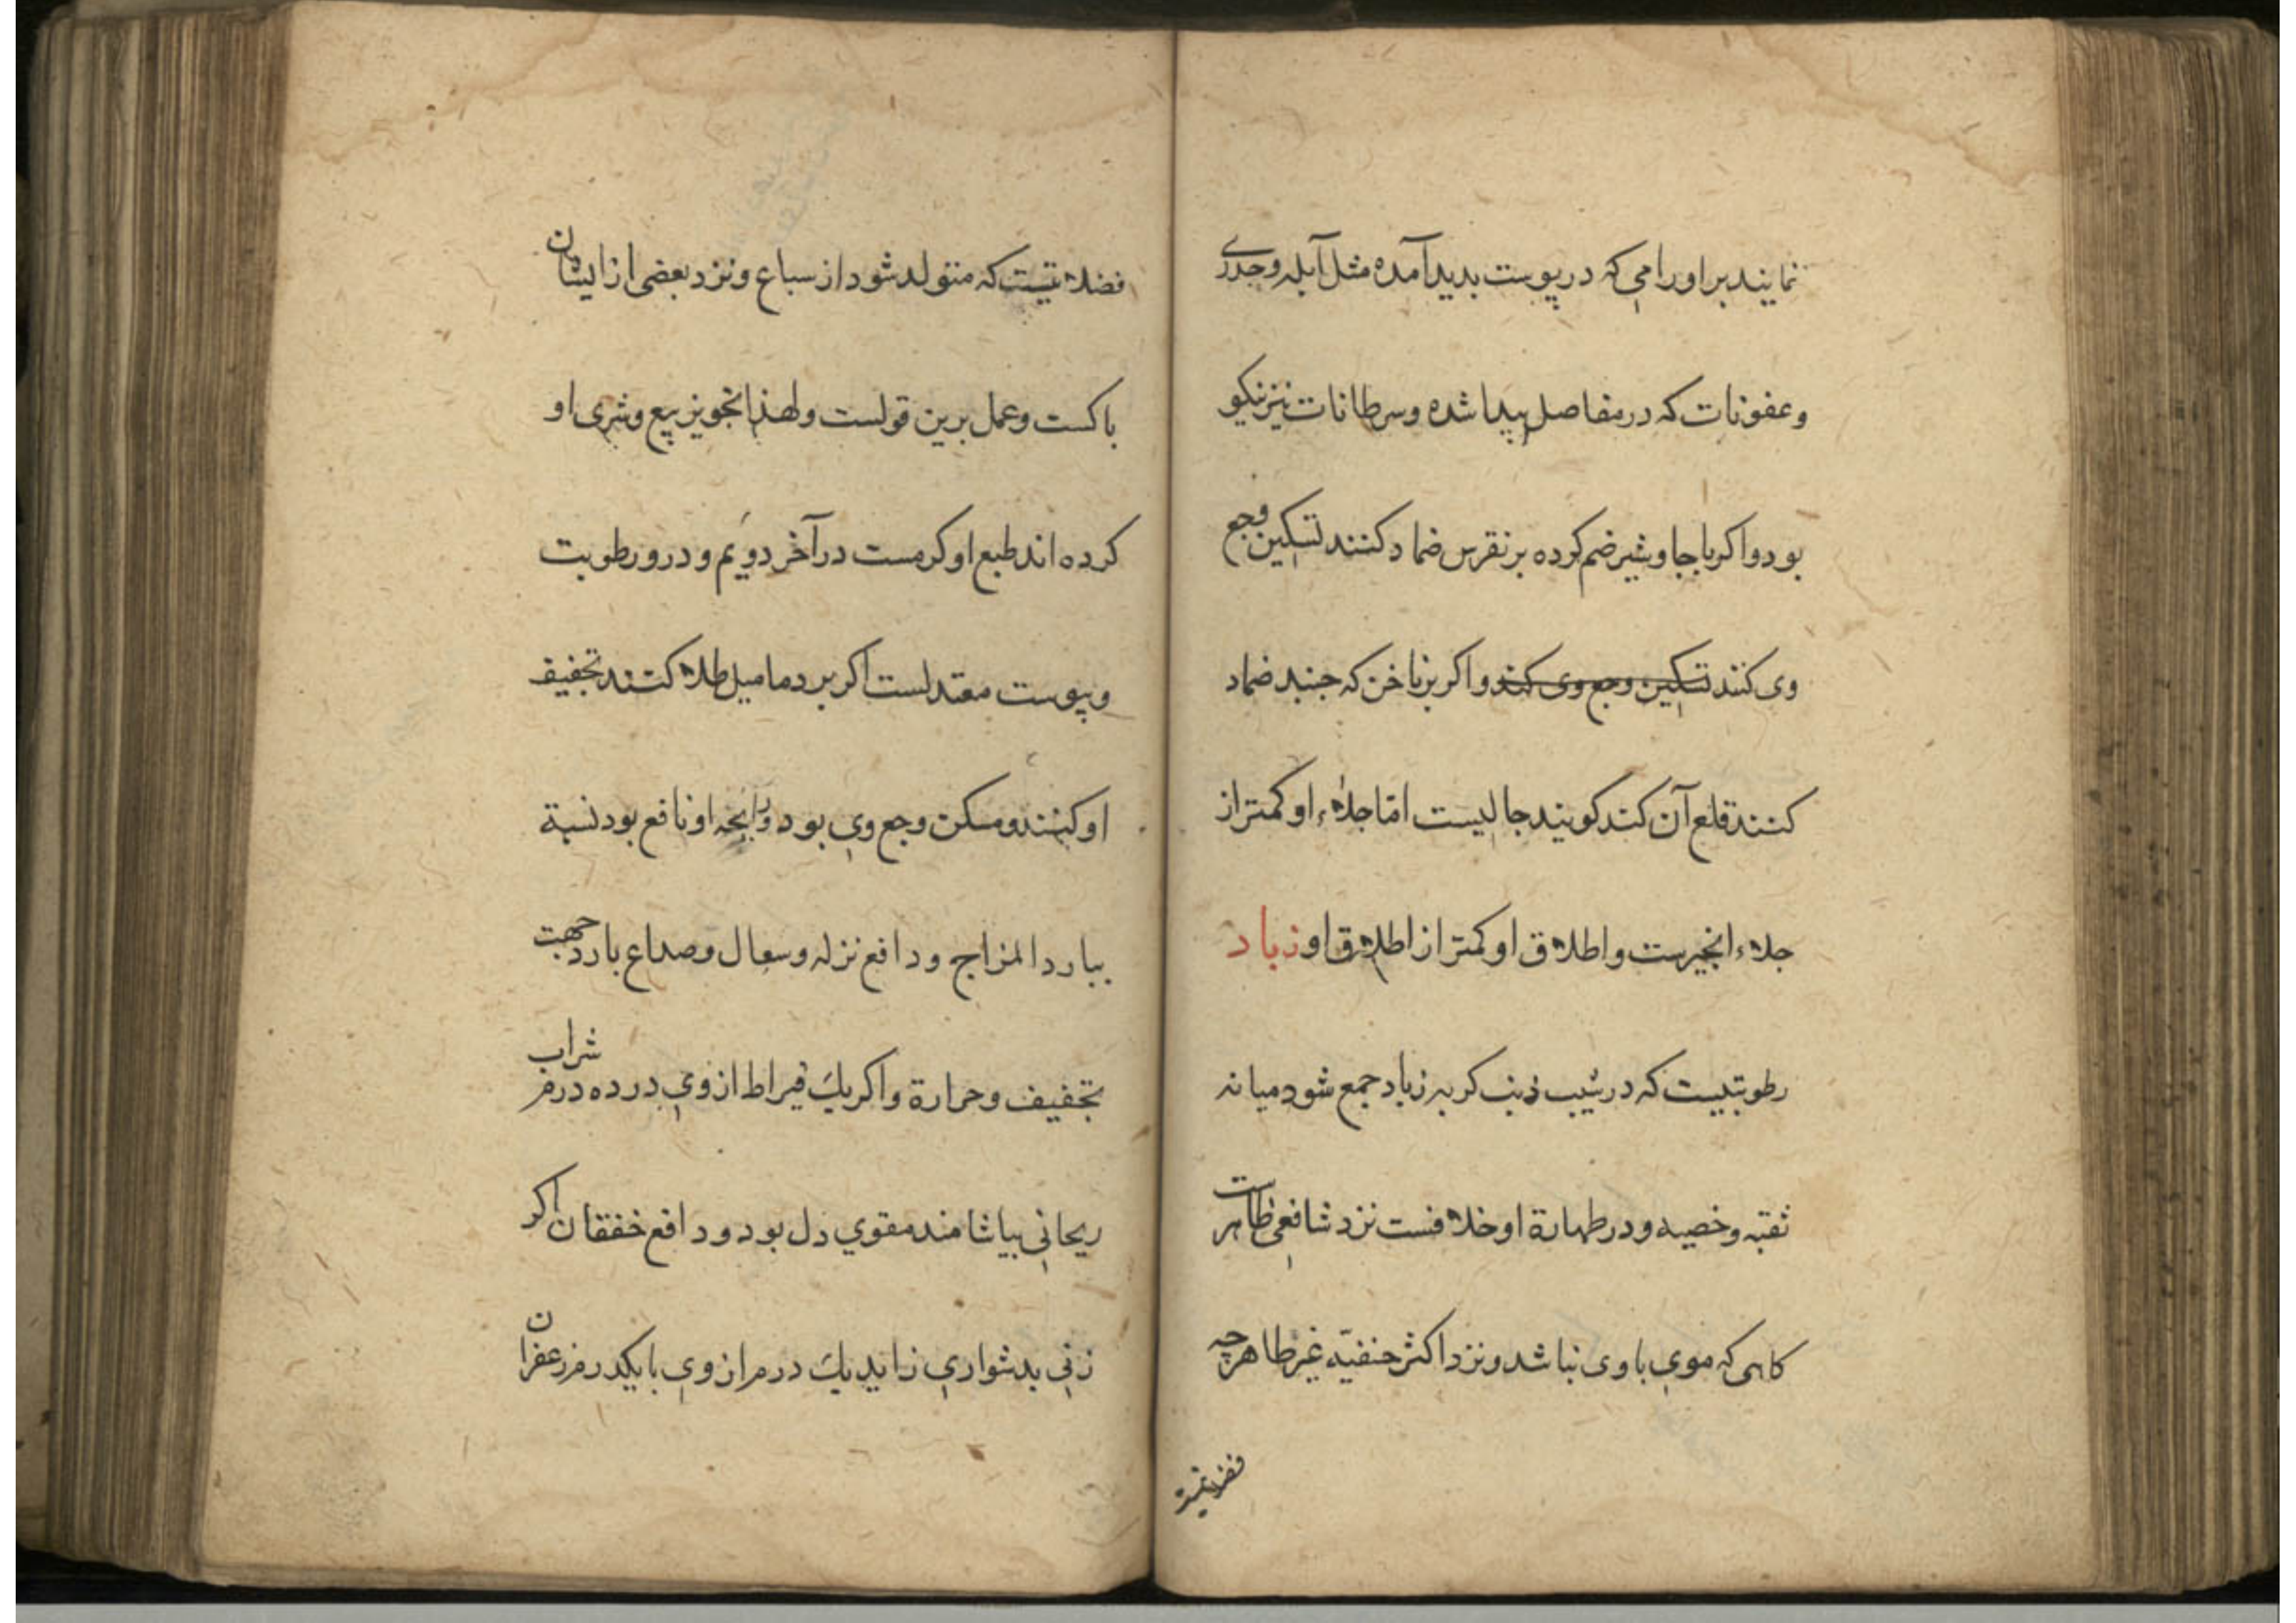 نمایند بر اورامی که در پوست بدید آمده مثل آبله وجدری
وعفونات که در مفاصل پیدا شده وسرطانات نیز نیکو
بود واکر با جاوشیر ضم کرده بر نقرس ضماد کنند تسکین وجع
وی کنند تسکین وجع وی کند واکر بر ناخن که جنبد ضماد
کنند قلع آن کند کویند جالیست اما جلاء او کمتر از
جلاء انجیرست واطلاق او کمتر از اطلاق او زباد
رطوبتیست که در شیب ذنب کربه زباد جمع شود میانه
ثقبه وخصیه ودر طهارة او خلافست نزد شافعی ظاهر است
کاهی که موی باوی نباشد ونزد اکثر حنفیه غیر طاهر چه
فضلاتیست
فضلاتیست که متولد شود از سباع ونزد بعضی از ایشان
باکست وعمل برین قولست ولهذا تجویز بیع وشری او
کرده اند طبع او کرمست در آخر دویم ودر ورطوبت
ویبوست معتدلست اکر بر دمامیل طلا کنند تجفیف
او کنند ومسکن وجع وی بود ورایحه او نافع بود نسبة
ببارد المزاج ودافع نزله وسعال وصداع بارد جهت
تجفیف وحرارة واکر یك قیراط از وی در ده درم شراب
ریحانی بیاشامند مقوي دل بود ودافع خفقان اکر
زنی بدشواری زاید یك درم از وی با یکدرم زعفران